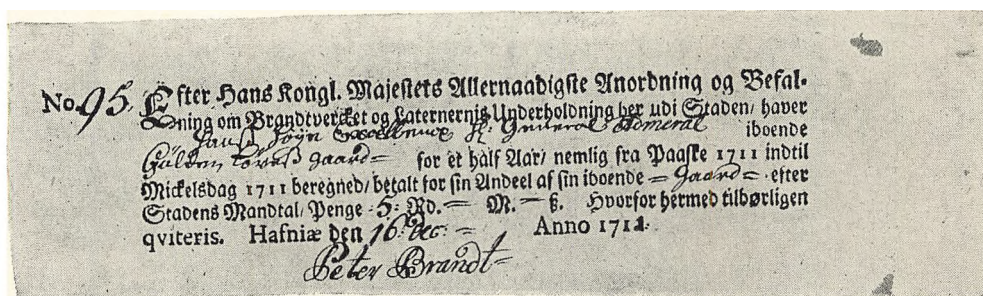 No. 95. Efter Hans Kongl. Majestets Allernaadigste Anordning og Befal-
ning om Brandtvercket og Laternernis Underholdning her udi Staden/ haver
Hans Høye Excellence H: General Admeral iboende
Gülden löves gaard = for et half Aar/ nemlig fra Paaske 1711 indtil
Mickelsdag 1711 beregned/ betalt for sin Andeel af sin iboende = Gaard = efter
Stadens Mandtal/ Penge 5: Rd. — M. — ß. Hvorfor hermed tilbørligen
qviteris. Hafniæ den 16: Dec: = Anno 1711.
Peter Brandt